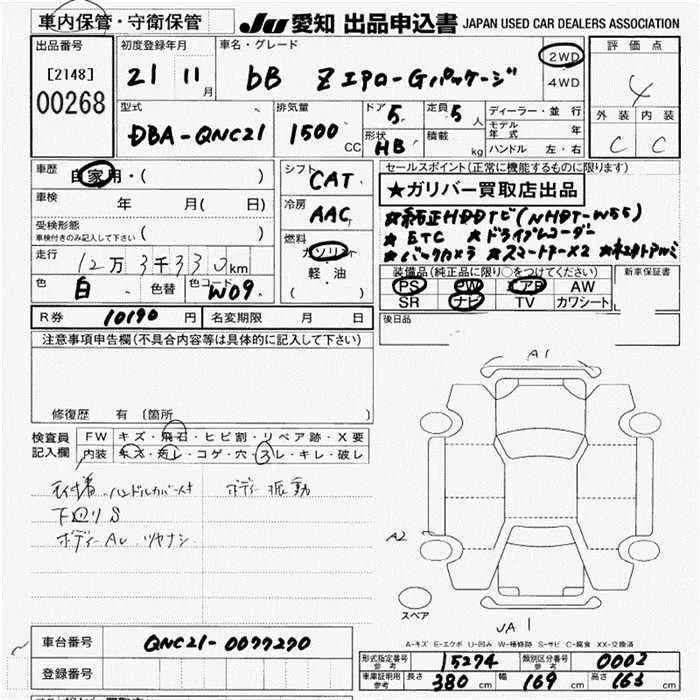 車内保管・守衛保管 JU 愛知 出品申込書 JAPAN USED CAR DEALERS ASSOCIATION
出品番号 初度登録年月 車名・グレード 評価点
[2148] 21 11月 bB Z エアロ-Gパッケージ 2WD 4
00268 4WD
型式 排気量 ドア 5 定員 5人 ディーラー・並行 外装 内装
DBA-QNC21 1500 CC 形状 HB 積載 kg モデル年式 年 C C
ハンドル 左・右
車歴 自家用・( )
シフト CAT
セールスポイント(正常に機能するものに限ります)
★ガリバー買取店出品
車検 年 月( 日)
冷房 AAC
★純正HDDナビ(NHDT-W55)
★ETC ★ドライブレコーダー
受検形態
車検付きのみ記入して下さい ( )
燃料 ガソリン
軽・油
( )
★バックカメラ ★スマートキー×2 ★社外アルミ
走行 12万3千333km
装備品(純正品に限り○をつけてください) 新車保証書
PS PW エアB AW
SR ナビ TV カワシート
色 白 色替 色コード W09
R券 10190 円 名変期限 月 日
後日品
注意事項申告欄(不具合内容等は具体的に記入して下さい)
修復歴 有 〔箇所
検査員記入欄 FW キズ・飛石・ヒビ割・リペア跡・X要
内装 キズ・汚レ・コゲ・穴・スレ・キレ・破レ
ハンドルカバー付 ボディー振動
下回りS
ボディーAU ツヤナシ
A1
A2
スペア
JA1
A-キズ E-エクボ U-凹み W-補修跡 S-サビ C-腐食 XX-交換済
車台番号 QNC21-0077270
登録番号
形式指定番号 参考 15274 類別区分番号 参考 0002
車庫証明用 参考 長さ 380 cm 幅 169 cm 高さ 163 cm